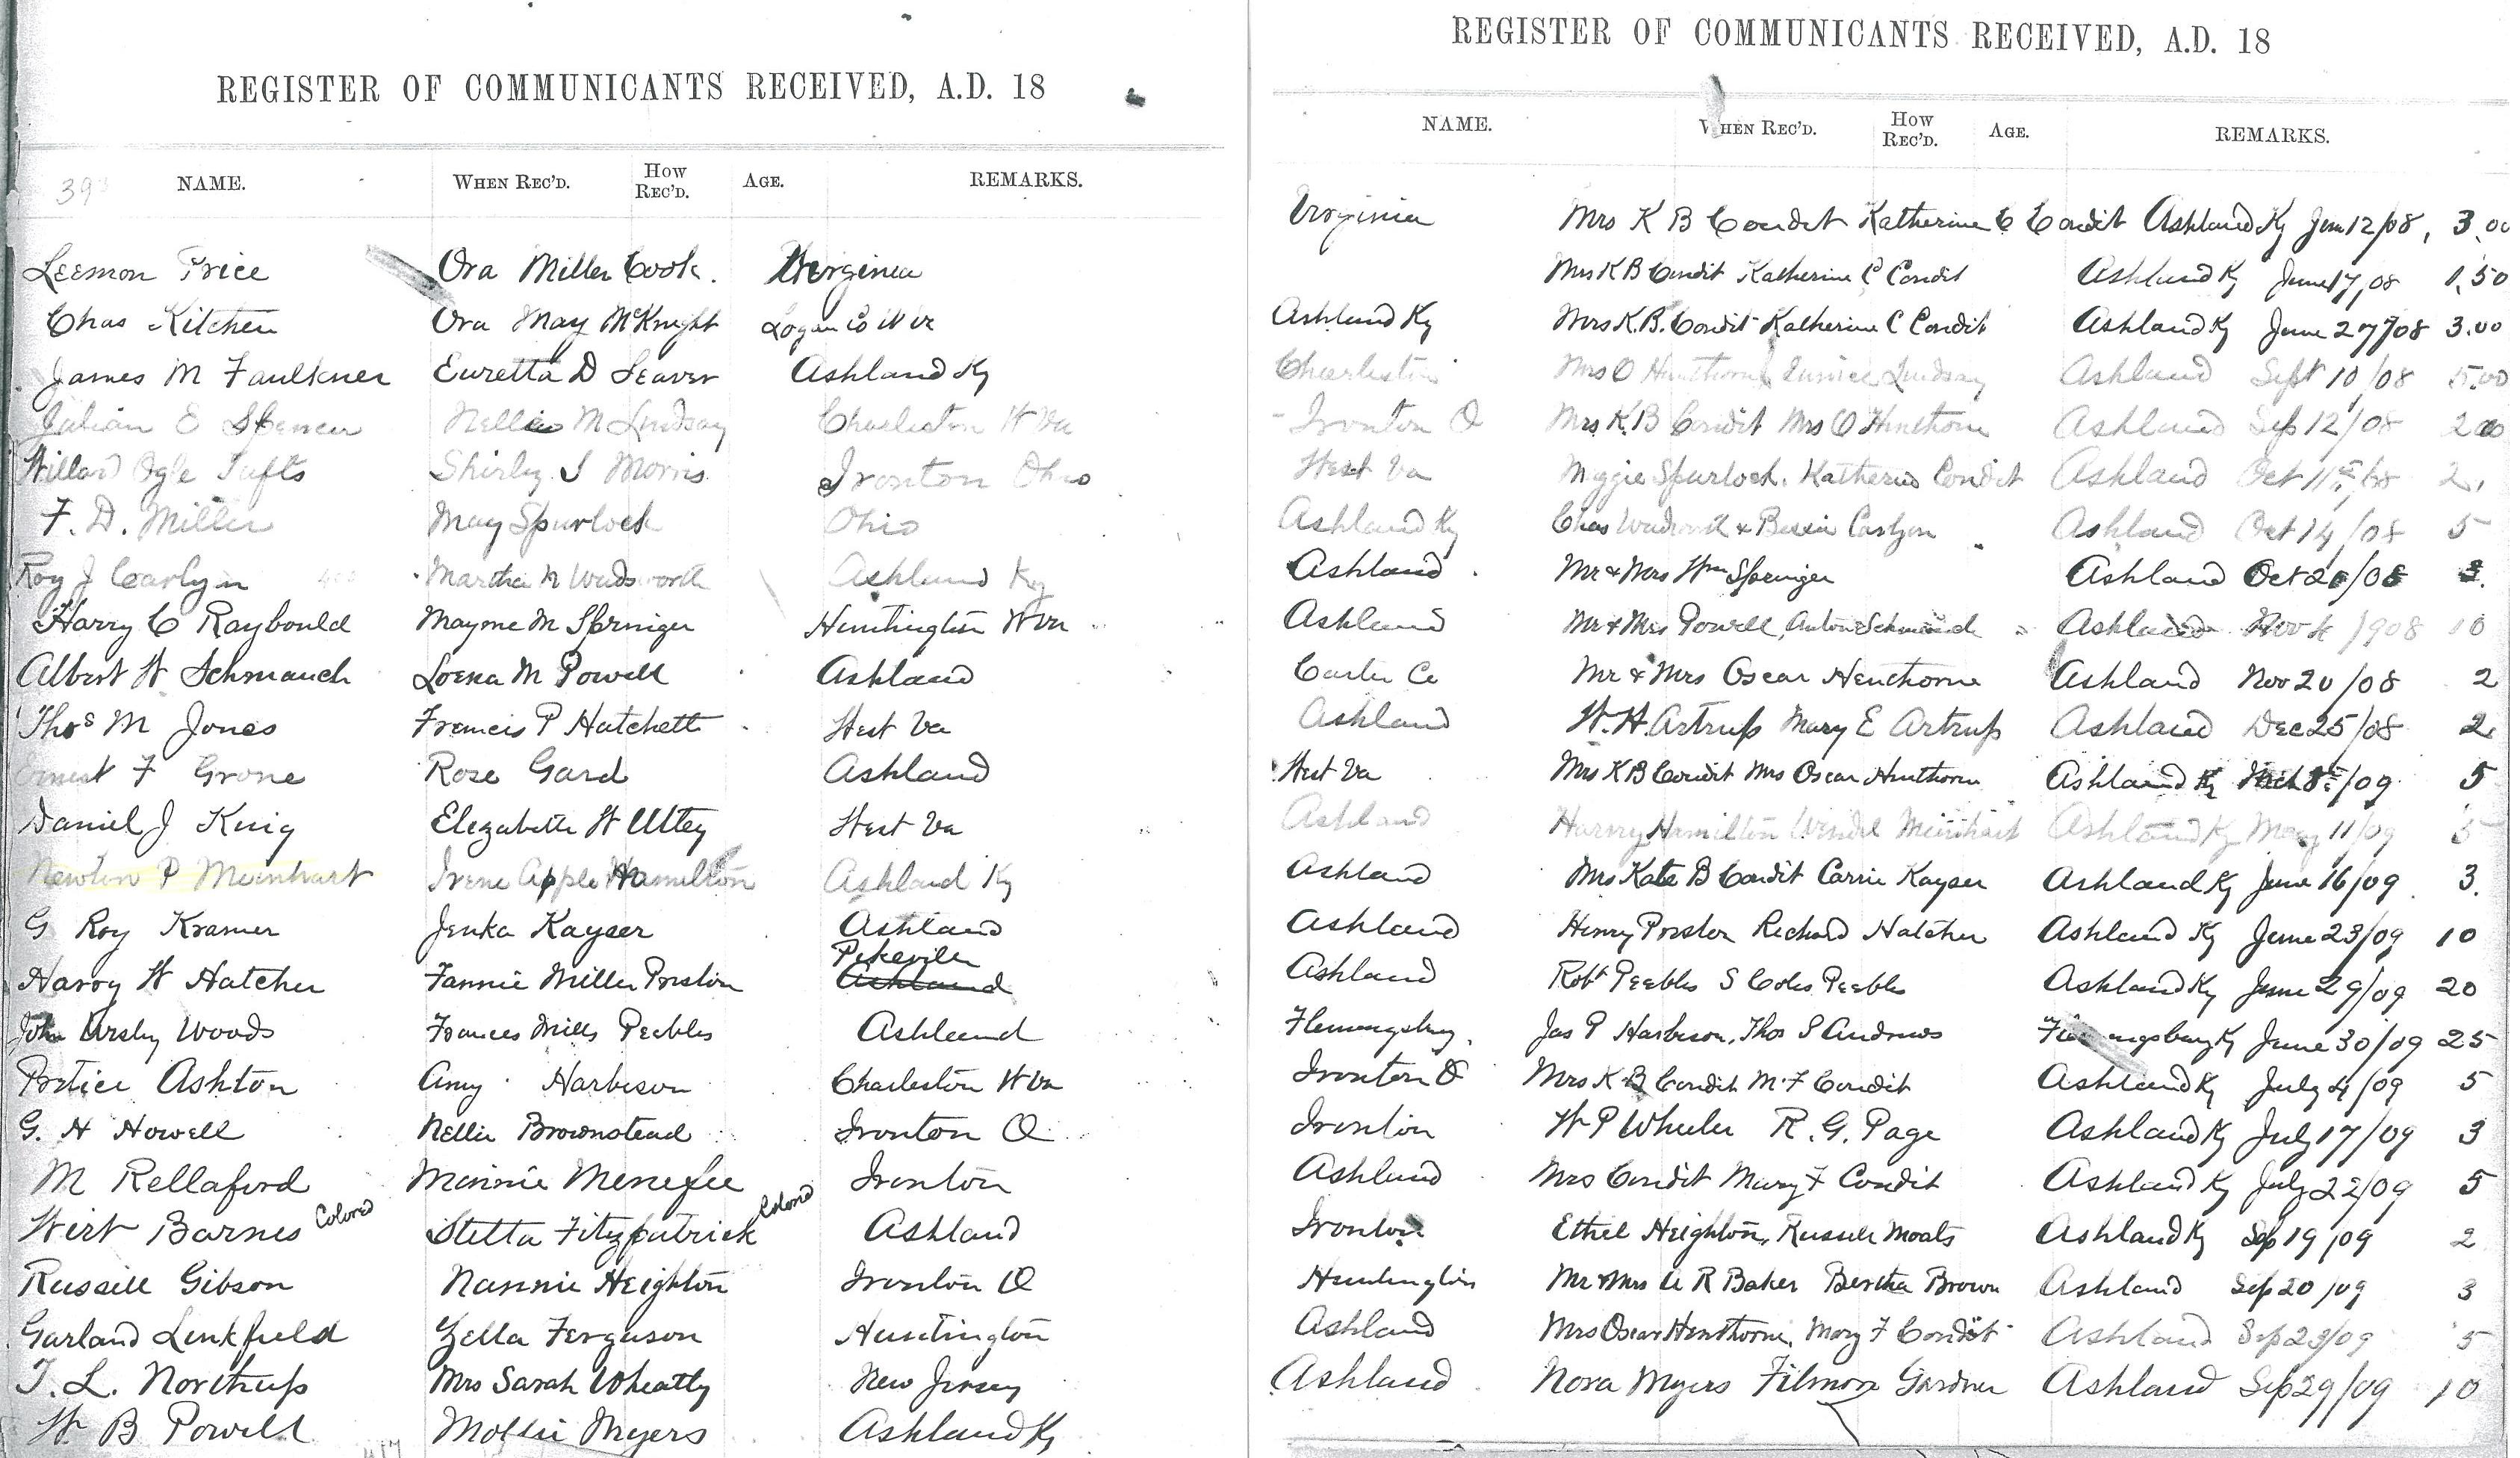 REGISTER OF COMMUNICANTS RECEIVED, A.D. 18
393 NAME. WHEN REC'D. HOW REC'D. AGE. REMARKS.
Leemon Price Ora Miller Cook. Virginia
Chas Kitchen Ora May McKnight Logan Co W Va
James M Faulkner Euretta D Seaver Ashland Ky
Julian E Spencer Nellie M Lindsay Charleston W Va
Willard Ogle Tufts Shirly S Morris Ironton Ohio
F. D. Miller May Spurlock Ohio
Roy J Carlyn 400 Martha N Wadsworth Ashland Ky
Harry C Raybould Mayme M Springer Huntington W Va
Albert W Schmauch Lorna M Powell Ashland
Thos M Jones Francis P Hatchett West Va
Ernest F Grone Rose Gard Ashland
Daniel J King Elezabeth W Utley West Va
Newton P Meinhart Irene Apple Hamilton Ashland Ky
G Roy Kramer Jenka Kayser Ashland
Pikeville
Harry W Hatcher Fannie Miller Preston Ashland
John Ursby Woods Frances Mills Peebles Ashland
Portice Ashton Amy Harbeson Charleston W Va
G. H Howell Nellie Brownstead Ironton O
M Rellaford Minnie Menefee Ironton
Wirt Barnes Colored Stella Fitzpatrick Colored Ashland
Russell Gibson Nannie Heighton Ironton O
Garland Linkfield Zella Ferguson Huntington
T. L. Northup Mrs Sarah Wheatly New Jersey
W B Powell Mollie Myers Ashland Ky
417
REGISTER OF COMMUNICANTS RECEIVED, A.D. 18
NAME. WHEN REC'D. HOW REC'D. AGE. REMARKS.
Virginia Mrs K B Condit Katherine C Condit Ashland Ky Jun 12/08, 3.00
Mrs K B Condit Katherine C Condit Ashland Ky June 17, 08 1.50
Ashland Ky Mrs K.B. Condit Katherine C Condit Ashland Ky June 27/08 3.00
Charleston Mrs O Henthorne Eunice Lindsay Ashland Sept 10/08 5.00
Ironton O Mrs K.B Condit Mrs O Henthorne Ashland Sep 12/08 2.00
West Va Maggie Spurlock. Katherine Condit Ashland Oct 11th/08 2.
Ashland Ky Chas Wadsworth & Bessie Carlyon Ashland Oct 14/08 5
Ashland Mr & Mrs Wm Springer Ashland Oct 20/08 3.
Ashland Mr & Mrs Powell, Anton Schmauch Ashland Nov 4 1908 10
Carter Co Mr & Mrs Oscar Henthorne Ashland Nov 20/08 2
Ashland W. H. Artrup Mary E Artrup Ashland Dec 25/08 2
West Va Mrs K B Condit Mrs Oscar Henthorne Ashland Ky Mch 8th/09 5
Ashland Harry Hamilton Wendel Meinhart Ashland Ky May 11/09 5
Ashland Mrs Kate B Condit Carrie Kayser Ashland Ky June 16/09 3.
Ashland Henry Preston Richard Hatcher Ashland Ky June 23/09 10
Ashland Robt Peebles S Coles Peebles Ashland Ky June 29/09 20
Flemingsburg, Jas P Harbeson, Thos S Andrews Flemingsburg Ky June 30/09 25
Ironton O Mrs K B Condit M. F Condit Ashland Ky July 4/09 5
Ironton W P Wheeler R. G. Page Ashland Ky July 17/09 3
Ashland Mrs Condit Mary F Condit Ashland Ky July 22/09 5
Ironton Ethel Heighton, Russell Moats Ashland Ky Sep 19/09 2
Huntington Mr & Mrs A R Baker Bertha Brown Ashland Sep 20/09 3
Ashland Mrs Oscar Henthorne, Mary F Condit Ashland Sep 23/09 5
Ashland Nora Myers Filmore Gardner Ashland Sep 29/09 10